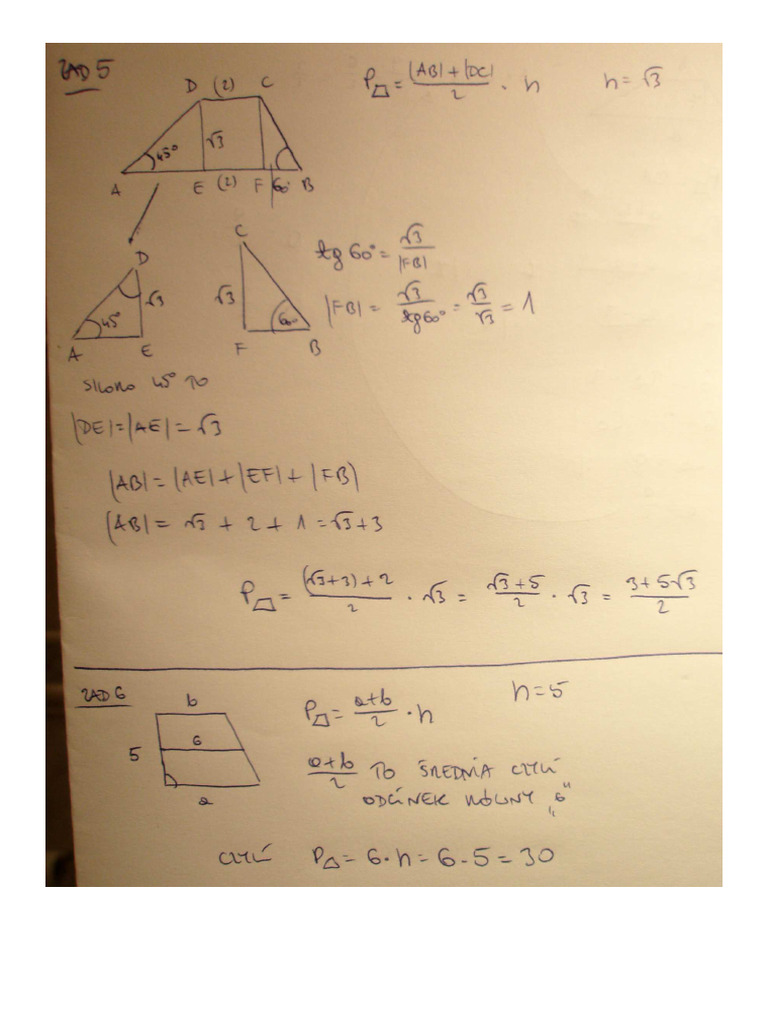 ZAD 5
P = (|AB| + |DC|)/2 · h    h = √3
D (2) C
45° √3
A E (2) F 60° B
D √3 45° A E
C √3 60° F B
tg 60° = √3/|FB|
|FB| = √3/tg60° = √3/√3 = 1
SKORO 45° TO
|DE| = |AE| = √3
|AB| = |AE| + |EF| + |FB|
|AB| = √3 + 2 + 1 = √3 + 3
P = ((√3+3)+2)/2 · √3 = (√3+5)/2 · √3 = (3+5√3)/2
ZAD 6
b
5 6
a
P = (a+b)/2 · h    h = 5
(a+b)/2 TO ŚREDNIA CZYLI
ODCINEK RÓWNY „6"
CZYLI P = 6·h = 6·5 = 30